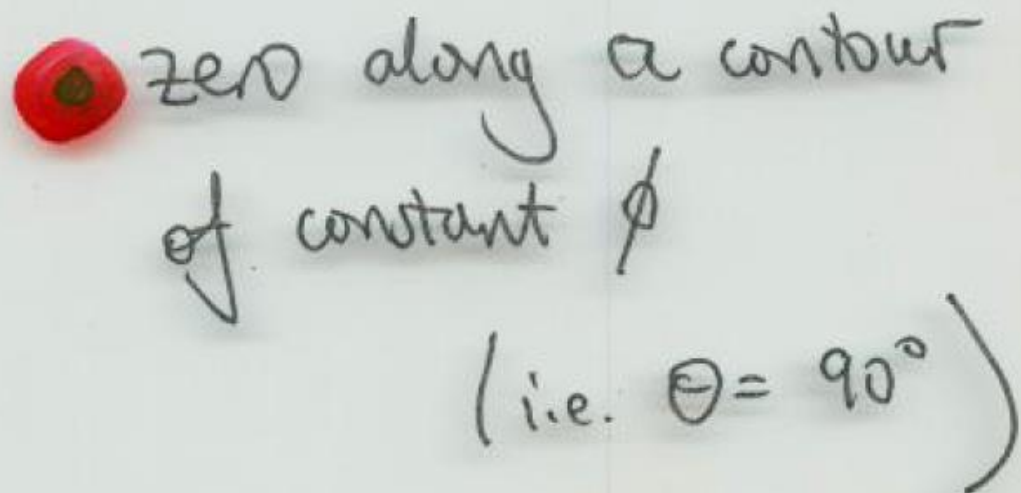 zero along a contour
of constant ϕ
(i.e. θ = 90°)